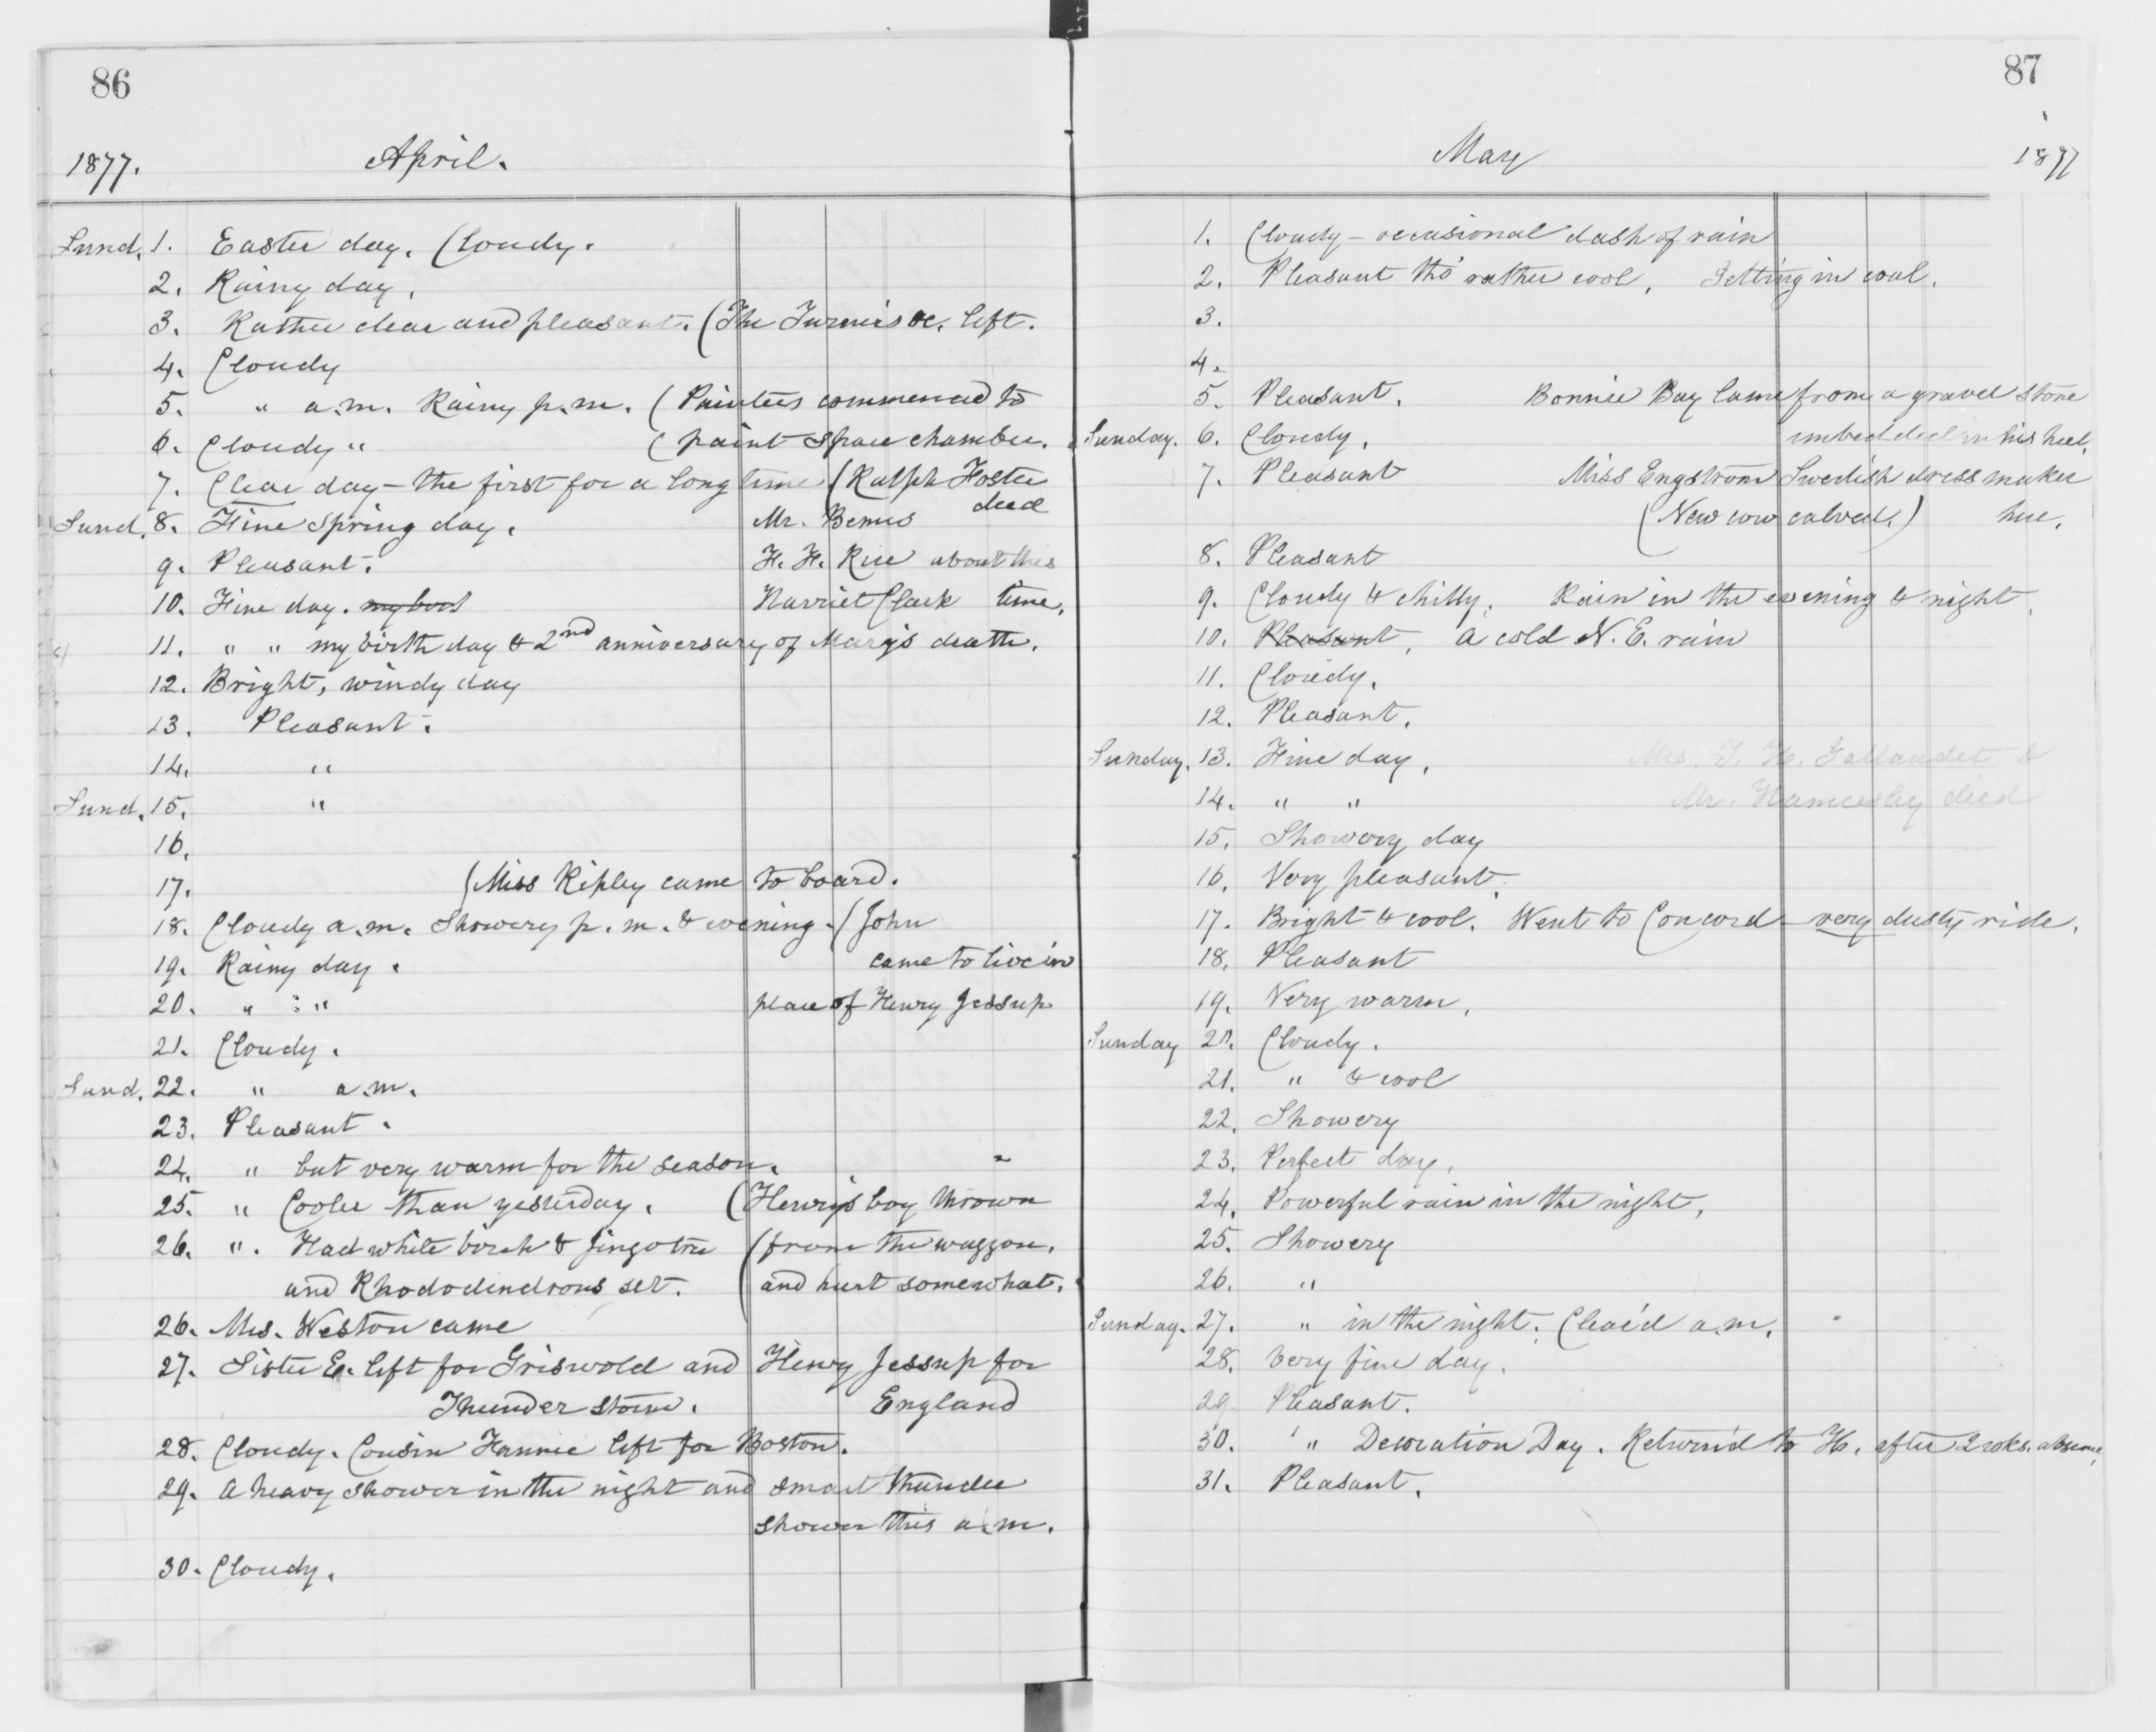 86
1877. April.
Sund. 1. Easter day. Cloudy.
2. Rainy day.
3. Rather clear and pleasant. (The &c. left.
4. Cloudy
5. " a.m. Rainy p.m. (Painters commenced to
6. Cloudy " (paint spare chamber.
7. Clear day – the first for a long time (Ralph Foster
died
Sund. 8. Fine spring day. Mr. Bemis
9. Pleasant. H. H. Rice about this
10. Fine day. my birt Harriet Clark time.
11. " " my birth day & 2nd anniversary of Mary's death.
12. Bright, windy day
13. Pleasant.
14. "
Sund. 15. "
16.
17. (Miss Ripley came to board.
18. Cloudy a.m. Showery p.m. & evening. (John
19. Rainy day. came to live in
20. " " place of Henry Jessup
21. Cloudy.
Sund. 22. " a.m.
23. Pleasant.
24. " but very warm for the season.
25. " Cooler than yesterday. (Henry's boy thrown
26. ". Had white birch & Jingo tree (from the waggon.
and Rhododendrons set. (and hurt somewhat.
26. Mrs. Weston came
27. Sister E. left for Griswold and Henry Jessup for
Thunder storm. England
28. Cloudy. Cousin Fannie left for Boston.
29. A heavy shower in the night and smart thunder
shower this a.m.
30. Cloudy.
87
May 1877
1. Cloudy – occasional dash of rain
2. Pleasant tho' rather cool. Getting in coal.
3.
4.
5. Pleasant. Bonnie Bay lame from a gravel stone
Sunday. 6. Cloudy. imbedded in his heel.
7. Pleasant Miss Engstrom Swedish dress maker
(New cow calved.) here.
8. Pleasant
9. Cloudy & chilly. Rain in the evening & night.
10. Pleasant. A cold N.E. rain
11. Cloudy.
12. Pleasant.
Sunday. 13. Fine day. Mrs. T. H. Gallaudet &
14. " " Mr. Hamersley died
15. Showery day
16. Very pleasant.
17. Bright & cool. Went to Concord – very dusty ride.
18. Pleasant
19. Very warm.
Sunday 20. Cloudy.
21. " & cool
22. Showery
23. Perfect day.
24. Powerful rain in the night.
25. Showery
26. "
Sunday. 27. " in the night. Clear'd a.m.
28. Very fine day.
29. Pleasant.
30. " Decoration Day. Return'd to H. after 2 wks. absence.
31. Pleasant.